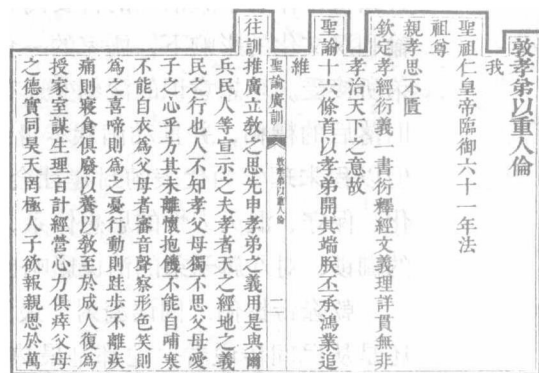 敦孝弟以重人倫
我
聖祖仁皇帝臨御六十一年法
祖尊
親孝思不匱
欽定孝經衍義一書衍釋經文義理詳貫無非
孝治天下之意故
聖諭十六條首以孝弟開其端朕丕承鴻業追
維
往訓推廣立教之思先申孝弟之義用是與爾
聖諭廣訓
敦孝弟以重人倫
二
兵民人等宣示之夫孝者天之經地之義
民之行也人不知孝父母獨不思父母愛
子之心乎方其未離懷抱饑不能自哺寒
不能自衣為父母者審音聲察形色笑則
為之喜啼則為之憂行動則跬步不離疾
痛則寢食俱廢以養以教至於成人復為
授家室謀生理百計經營心力俱瘁父母
之德實同昊天罔極人子欲報親恩於萬